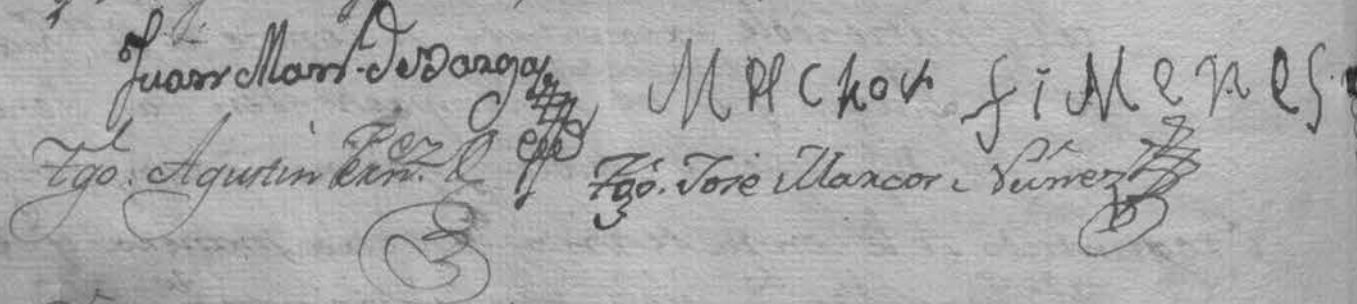 Juan Man.l de Vargas Melchor Jimenes
Tgo. Agustin Fern.ez Tgo. José Marcos Nuñez